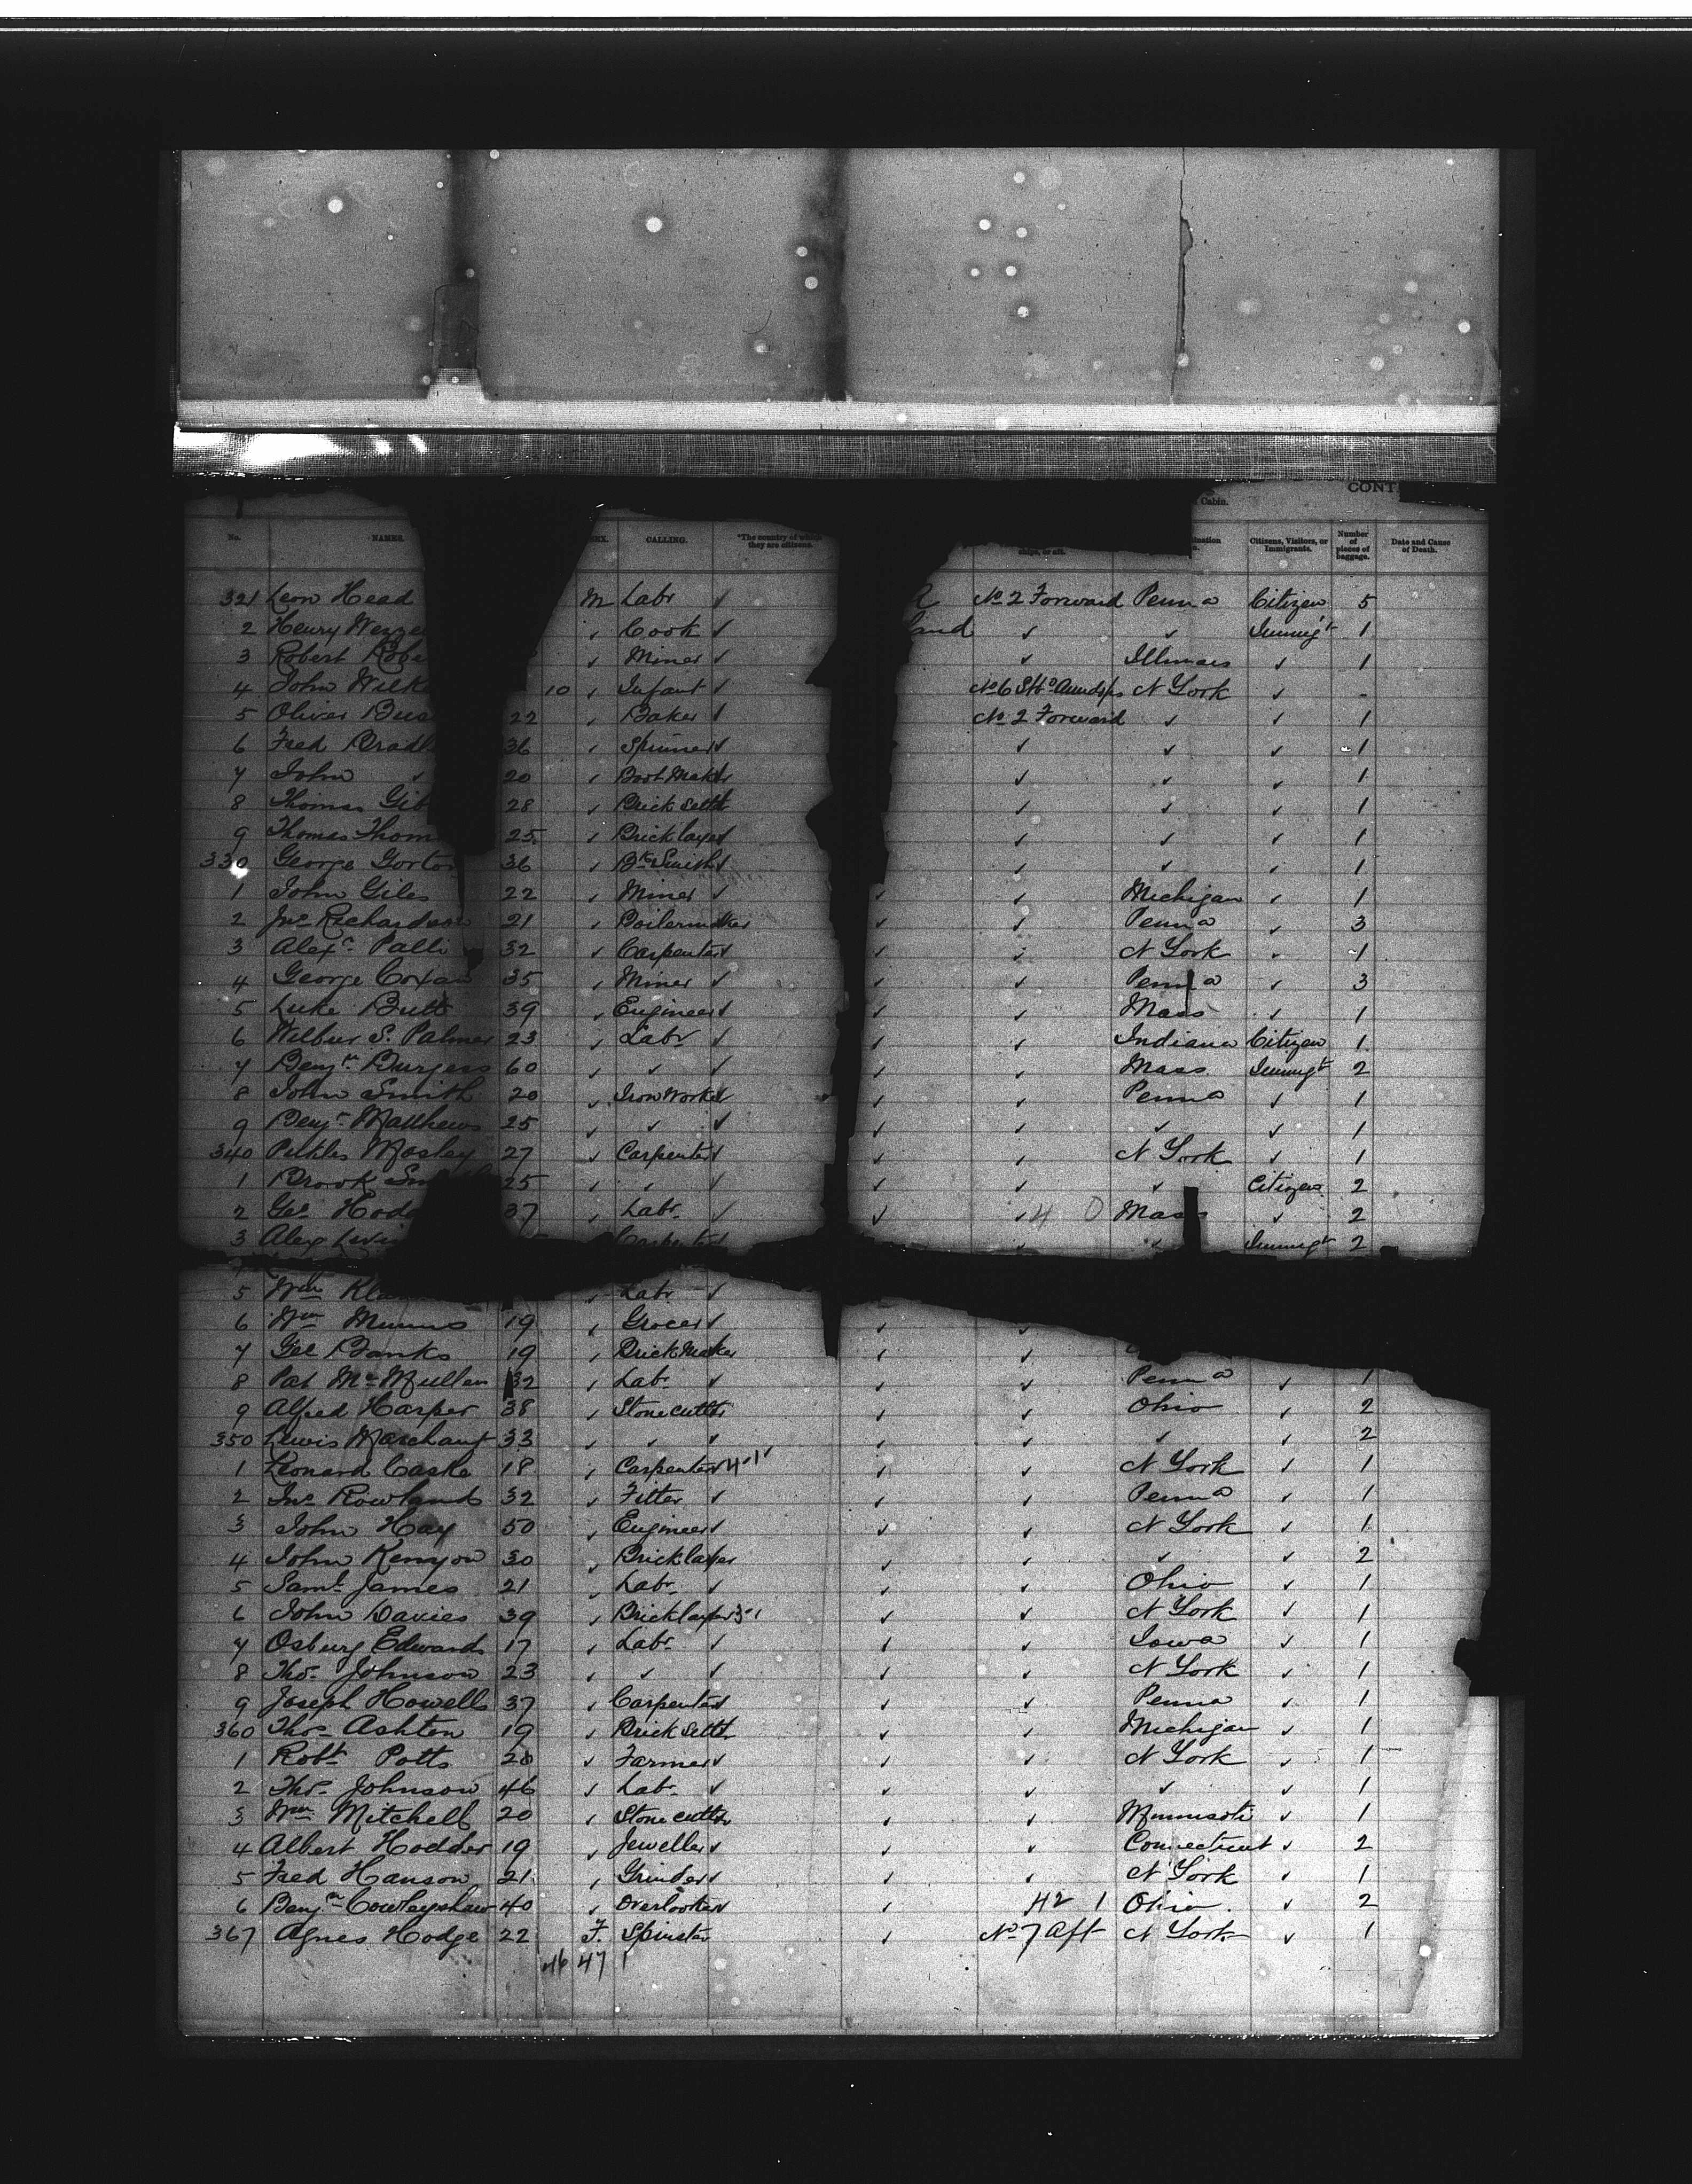 CONT
Cabin.
No. NAMES. CALLING. *The country of which they are citizens. ships, or aft. Citizens, Visitors, or Immigrants. Number of pieces of baggage. Date and Cause of Death.
321 Leon Head M Labr ✓ No 2 Forward Penna Citizen 5
2 Henry Cook ✓ land ✓ ✓ Immigt 1
3 Robert Miner ✓ ✓ Illinois ✓ 1
4 John 10 Infant ✓ No 6 N York ✓ -
5 Oliver 22 Baker ✓ No 2 Forward ✓ ✓ 1
6 Fred 36 Spinner ✓ ✓ ✓ ✓ 1
7 John ✓ 20 Boot Maker ✓ ✓ ✓ 1
8 Thomas 28 Brick Settr ✓ ✓ ✓ 1
9 Thomas 25 Bricklayer ✓ ✓ ✓ 1
330 George Gorton 36 Bk Smith ✓ ✓ ✓ ✓ 1
1 John Giles 22 Miner ✓ ✓ ✓ Michigan ✓ 1
2 Jno Richardson 21 Boilermaker ✓ ✓ Penna ✓ 3
3 Alexr 32 Carpenter ✓ ✓ ✓ N York ✓ 1
4 George Coxan 35 Miner ✓ ✓ ✓ Penna ✓ 3
5 Luke Butt 39 Engineer ✓ ✓ ✓ Mass ✓ 1
6 Wilbur S. Palmer 23 Labr ✓ ✓ ✓ Indiana Citizen 1
7 Benjn Burgess 60 ✓ ✓ ✓ ✓ Mass Immigt 2
8 John Smith 20 Iron Worker ✓ ✓ ✓ Penna ✓ 1
9 Benjn Matthews 25 ✓ ✓ ✓ ✓ ✓ ✓ 1
340 Mosley 27 Carpenter ✓ ✓ ✓ N York ✓ 1
1 Brook 25 ✓ ✓ ✓ ✓ ✓ Citizen 2
2 Geo 37 Labr ✓ ✓ ✓ 4 0 Mass ✓ 2
3 Alex Carpenter ✓ ✓ ✓ Immigt 2
5 Wm Labr ✓
6 Wm Munns 19 Grocer ✓ ✓ ✓
7 Geo Banks 19 Brick Maker ✓ ✓
8 Pat McMullen 32 Labr ✓ ✓ ✓ Penna ✓ 1
9 Alfred Harper 38 Stonecutter ✓ ✓ Ohio ✓ 2
350 Lewis Marchant 33 ✓ ✓ ✓ ✓ ✓ ✓ 2
1 Leonard Caske 18 Carpenter 4-1 ✓ ✓ N York ✓ 1
2 Jno Rowland 32 Fitter ✓ ✓ ✓ Penna ✓ 1
3 John Hay 50 Engineer ✓ ✓ ✓ N York ✓ 1
4 John Kenyon 30 Bricklayer ✓ ✓ ✓ ✓ 2
5 Saml James 21 Labr ✓ ✓ ✓ Ohio ✓ 1
6 John Davies 39 Bricklayer 3-1 ✓ ✓ N York ✓ 1
7 Osburg Edwards 17 Labr ✓ ✓ ✓ Iowa ✓ 1
8 Thos Johnson 23 ✓ ✓ ✓ ✓ N York ✓ 1
9 Joseph Howells 37 Carpenter ✓ ✓ ✓ Penna ✓ 1
360 Thos Ashton 19 Brick Settr ✓ ✓ Michigan ✓ 1
1 Robt Potts 20 Farmer ✓ ✓ ✓ N York ✓ 1
2 Thos Johnson 46 Labr ✓ ✓ ✓ ✓ ✓ 1
3 Wm Mitchell 20 Stonecutter ✓ ✓ Minnisoti ✓ 1
4 Albert Hodder 19 Jeweller ✓ ✓ ✓ Connecticut ✓ 2
5 Fred Hanson 21 Grinder ✓ ✓ ✓ N York ✓ 1
6 Benjn Cowleyshaw 40 Overlooker ✓ ✓ 42 1 Ohio ✓ 2
367 Agnes Hodge 22 F. Spinster ✓ No 7 Aft N York ✓ 1
46 47 1